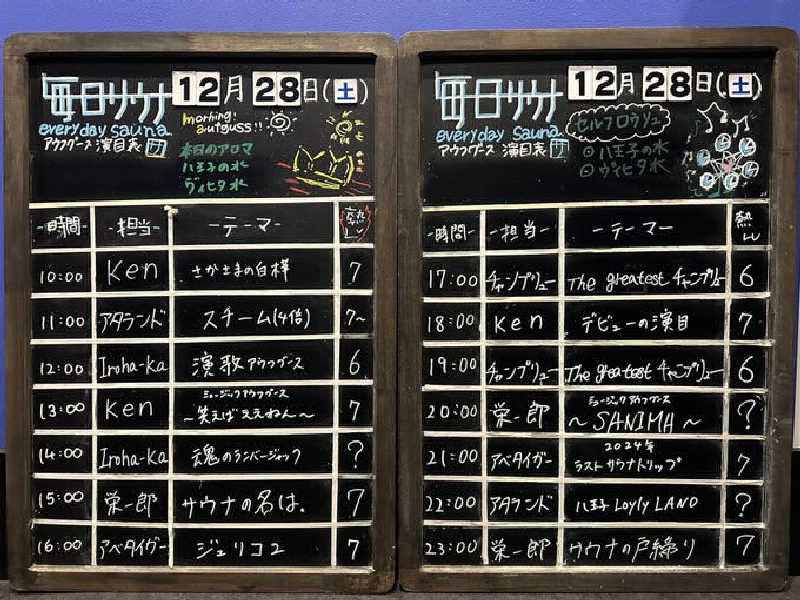 毎日サウナ
12月28日(土)
everyday sauna
アウフグース 演目表
morning!
autguss!!
本日のアロマ
八王子の水
ヴィヒタ水
-時間- -担当- -テーマ- 熱
10:00 Ken さかさまの白樺 7
11:00 アタランド スチーム(4倍) 7~
12:00 Iroha-ka 演歌アウフグース 6
ミュージックアウフグース
13:00 Ken ~笑えばええねん~ 7
14:00 Iroha-ka 魂のランバージャック ?
15:00 栄一郎 サウナの名は. 7
16:00 アベタイガー ジェリコ2 7
毎日サウナ
12月28日(土)
everyday sauna
アウフグース 演目表
セルフロウリュ
八王子の水
ヴィヒタ水
-時間- -担当- -テーマ- 熱
17:00 チャンプリュー The greatest チャンプリュー 6
18:00 Ken デビューの演目 7
19:00 チャンプリュー The greatest チャンプリュー 6
ミュージックアウフグース
20:00 栄一郎 ~SANIMA~ ?
2024年
21:00 アベタイガー ラストサウナドリップ 7
22:00 アタランド 八王子 Loyly LAND ?
23:00 栄一郎 サウナの戸締り 7